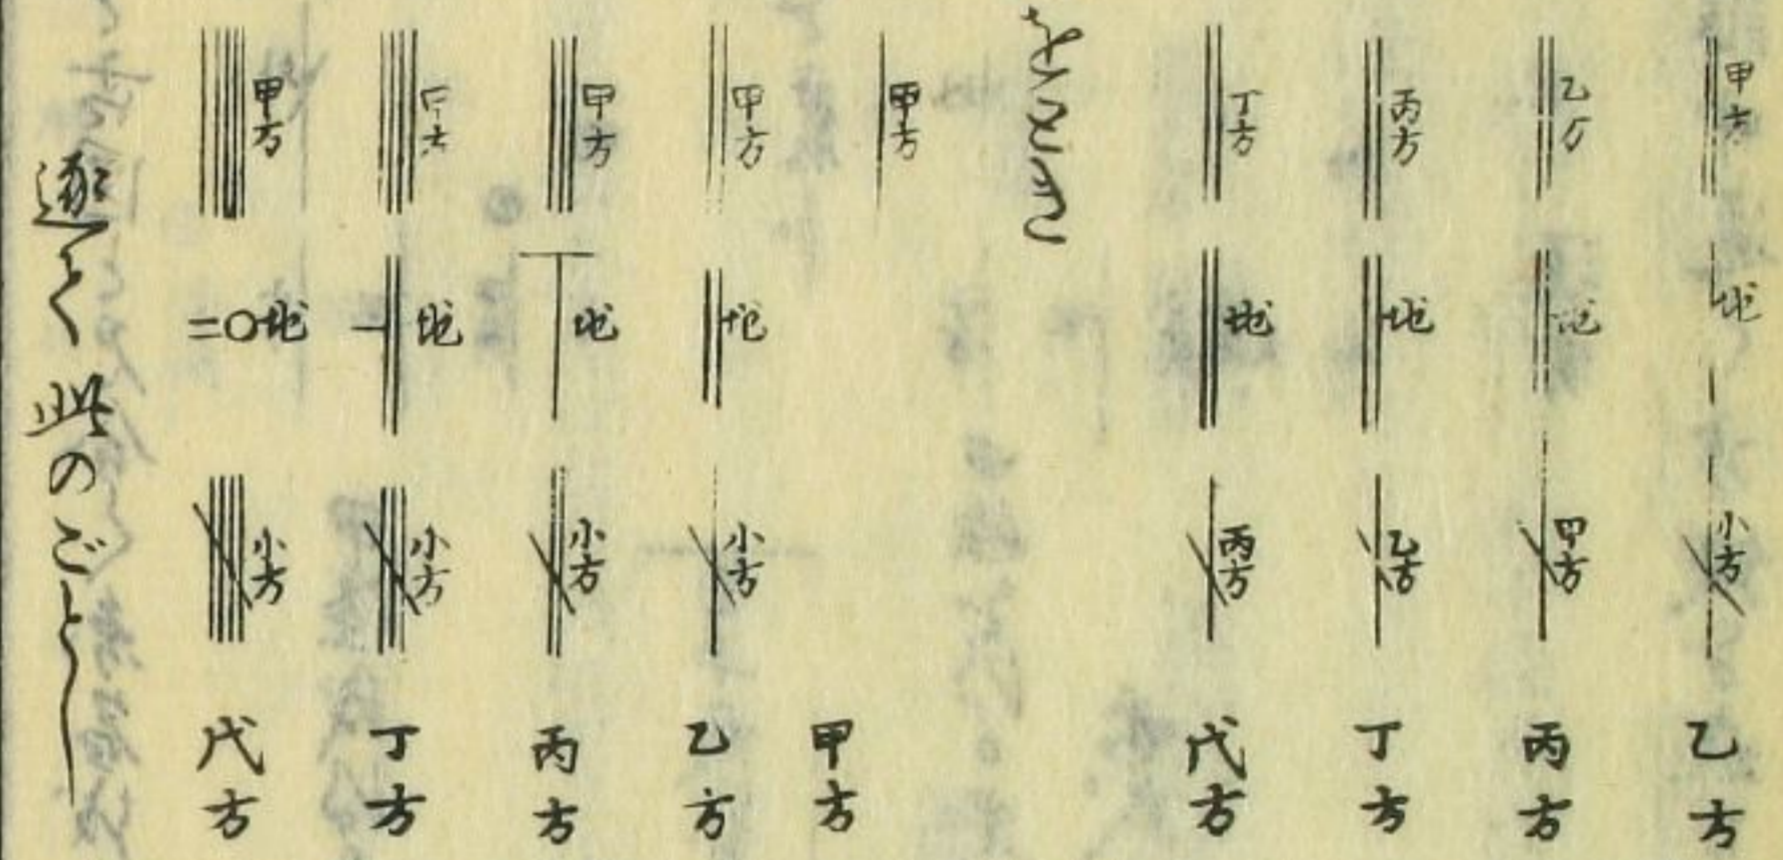 甲方 地 小方 乙方
乙方 地 甲方 丙方
丙方 地 乙方 丁方
丁方 地 丙方 戊方
をとき
甲方 甲方
甲方 地 小方 乙方
甲方 地 小方 丙方
甲方 地 小方 丁方
甲方 〇地 小方 戊方
逐て此のごとし